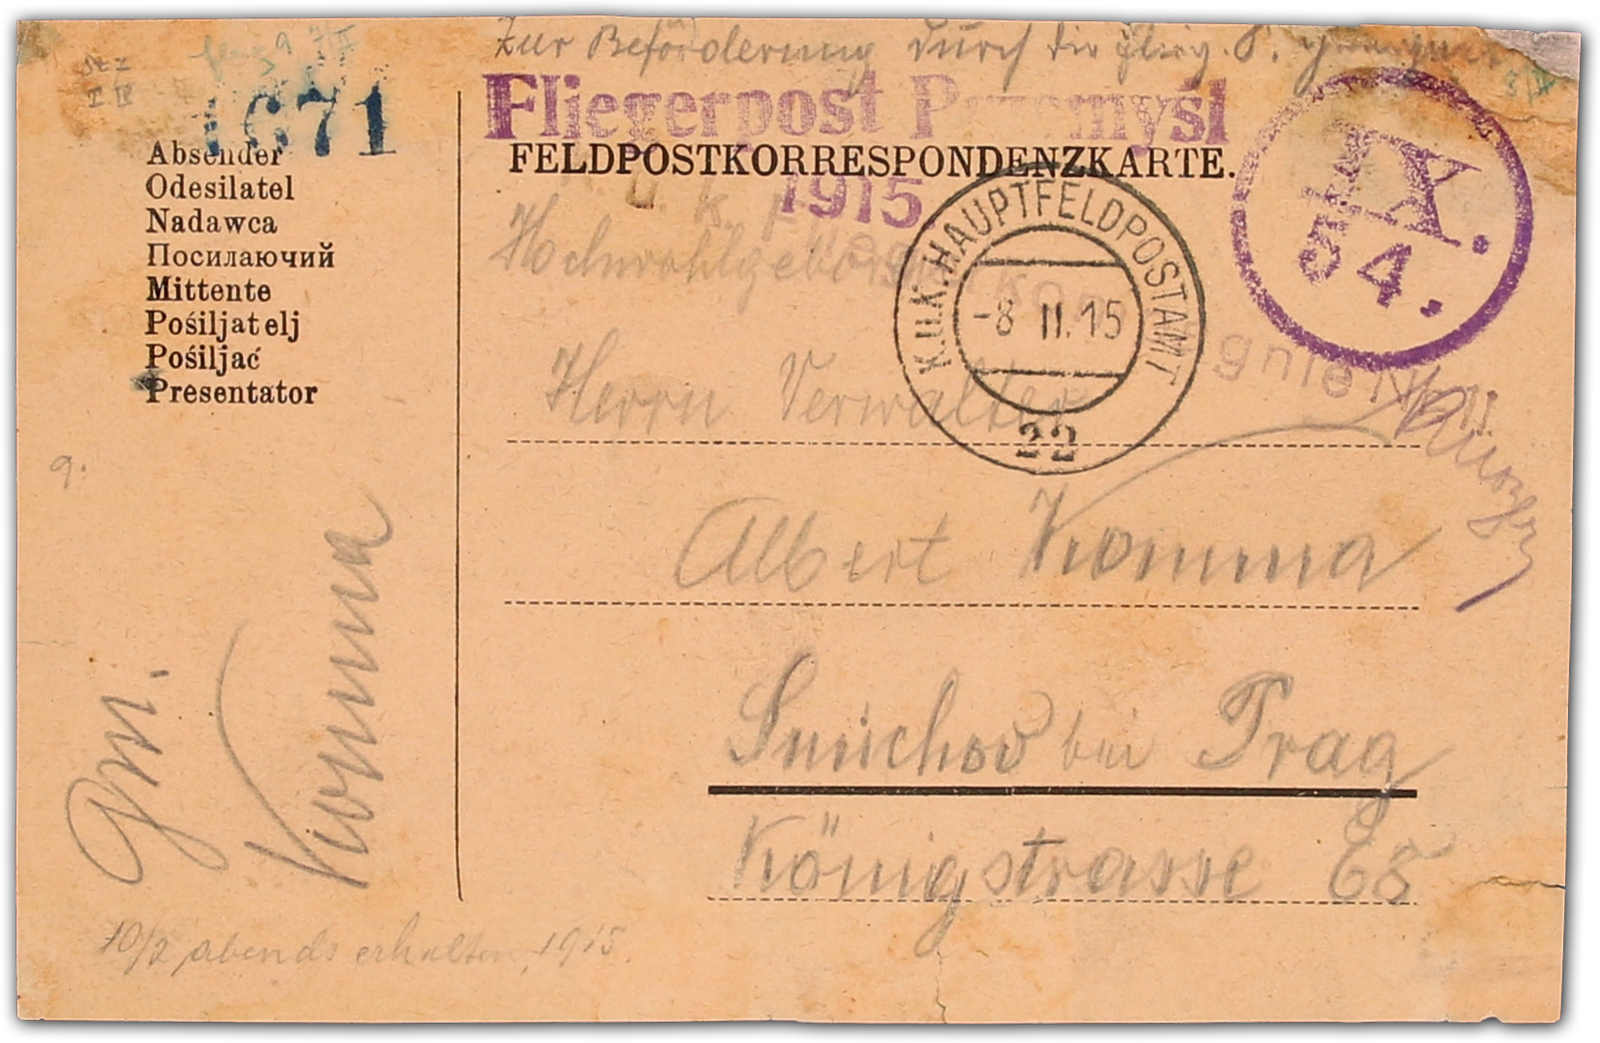 Zur Beförderung durch die Flieg.
1671
Fliegerpost Przemyśl
1915
FELDPOSTKORRESPONDENZKARTE.
IX
54.
Absender
Odesilatel
Nadawca
Посилаючий
Mittente
Pośiljatelj
Pośiljač
Presentator
K.u.K. HAUPTFELDPOSTAMT
-8 II. 15
22
Hochwohlgeboren
Herrn Verwalter
Albert Komma
Smichov bei Prag
Königstrasse
9.
Komma
10/2 abends erhalten, 1915.